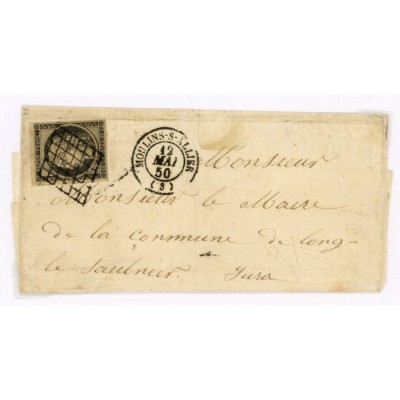 MOULINS-S-ALLIER
12
MAI
50
(3)
Monsieur
Monsieur le Maire
de la commune de long-
le Saulnier.
Jura